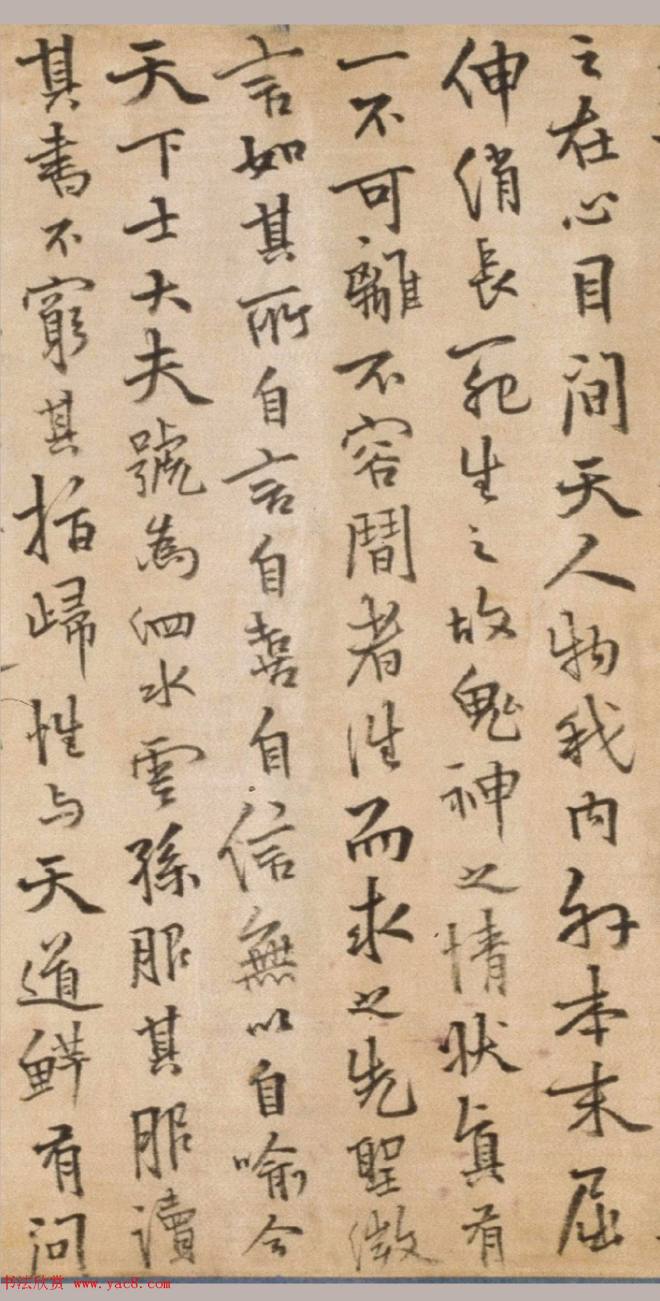 之在心目间天人物我内外本末屈
伸消長死生之故鬼神之情状真有
一不可離不容間者性而求之先聖微
言如其所自言自喜自信無以自喻今
天下士大夫號為泗水雲孫服其服讀
其書不窮其指歸性与天道鲜有问
书法欣赏 www.yac8.com